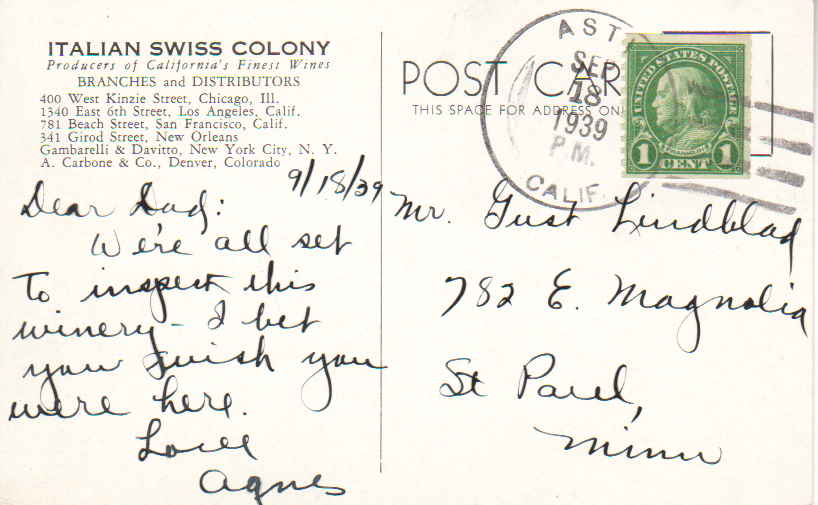 ITALIAN SWISS COLONY
Producers of California's Finest Wines
BRANCHES and DISTRIBUTORS
400 West Kinzie Street, Chicago, Ill.
1340 East 6th Street, Los Angeles, Calif.
781 Beach Street, San Francisco, Calif.
341 Girod Street, New Orleans
Gambarelli & Davitto, New York City, N. Y.
A. Carbone & Co., Denver, Colorado
9/18/39
Dear Dad:
We're all set
to inspect this
winery - I bet
you wish you
were here.
Love
Agnes
POST CAR
THIS SPACE FOR ADDRESS ON
ASTI
SEP
18
1939
P.M.
CALIF.
UNITED STATES POSTAGE
FRANKLIN
1 CENT 1
Mr. Gust Lindblad
782 E. Magnolia
St Paul,
Minn